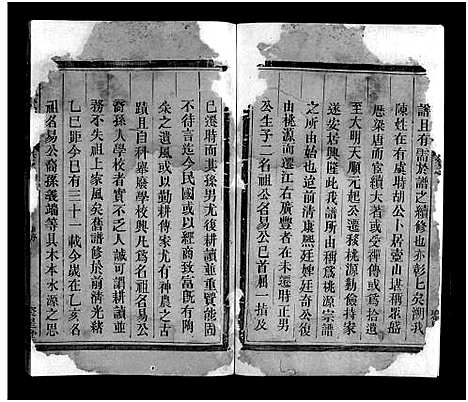 譜且有需於譜之續修也亦彰匕矣溯我
陳姓在有虞時胡公卜居壺山堪稱衆盛
歷梁唐而宦績大著或受禪傳或爲拾遺
至大明天順元起公遷移桃源勤儉持家
遂安居興隆此我譜所由稱爲桃源宗譜
之所由始也迨前清康熙廷婢廷奇公復
由桃源而遷江右廣豐者在未遷時正男
公生子二名祖公名易公已首輯一括及
已遷時而其孫男尤復耕讀並重賢能固
不待言迄今民國或以經商致富既有陶
朱之遺風或以勤耕傳家尤有神農之古
蹟且自科舉廢學校興凡爲名祖名易公
裔孫入學校者實不乏人誠可謂耕讀並
務不失祖上家風矣舊譜修於前清光緒
乙巳距今已有三十一載今歲在乙亥名
祖名易公裔孫義端等具木本水源之思